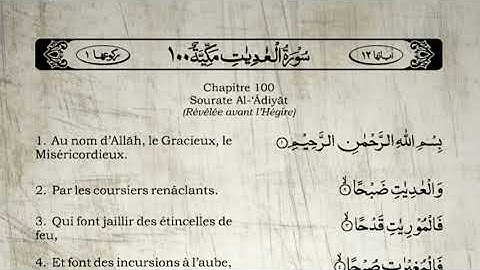 اٰیاتها ١٢
سُوۡرَۃُ الْعٰدِیٰتِ مَکِّیَّۃٌ ١٠٠
رکوعها ١
Chapitre 100
Sourate Al-‘Âdiyât
(Révélée avant l’Hégire)
1. Au nom d’Allâh, le Gracieux, le
Miséricordieux.
بِسْمِ اللّٰہِ الرَّحْمٰنِ الرَّحِیْمِ ۝١
2. Par les coursiers renâclants.
وَالْعٰدِیٰتِ ضَبْحًا ۝٢
3. Qui font jaillir des étincelles de
feu,
فَالْمُوْرِیٰتِ قَدْحًا ۝٣
4. Et font des incursions à l’aube,
فَالْمُغِیْرٰتِ صُبْحًا ۝٤